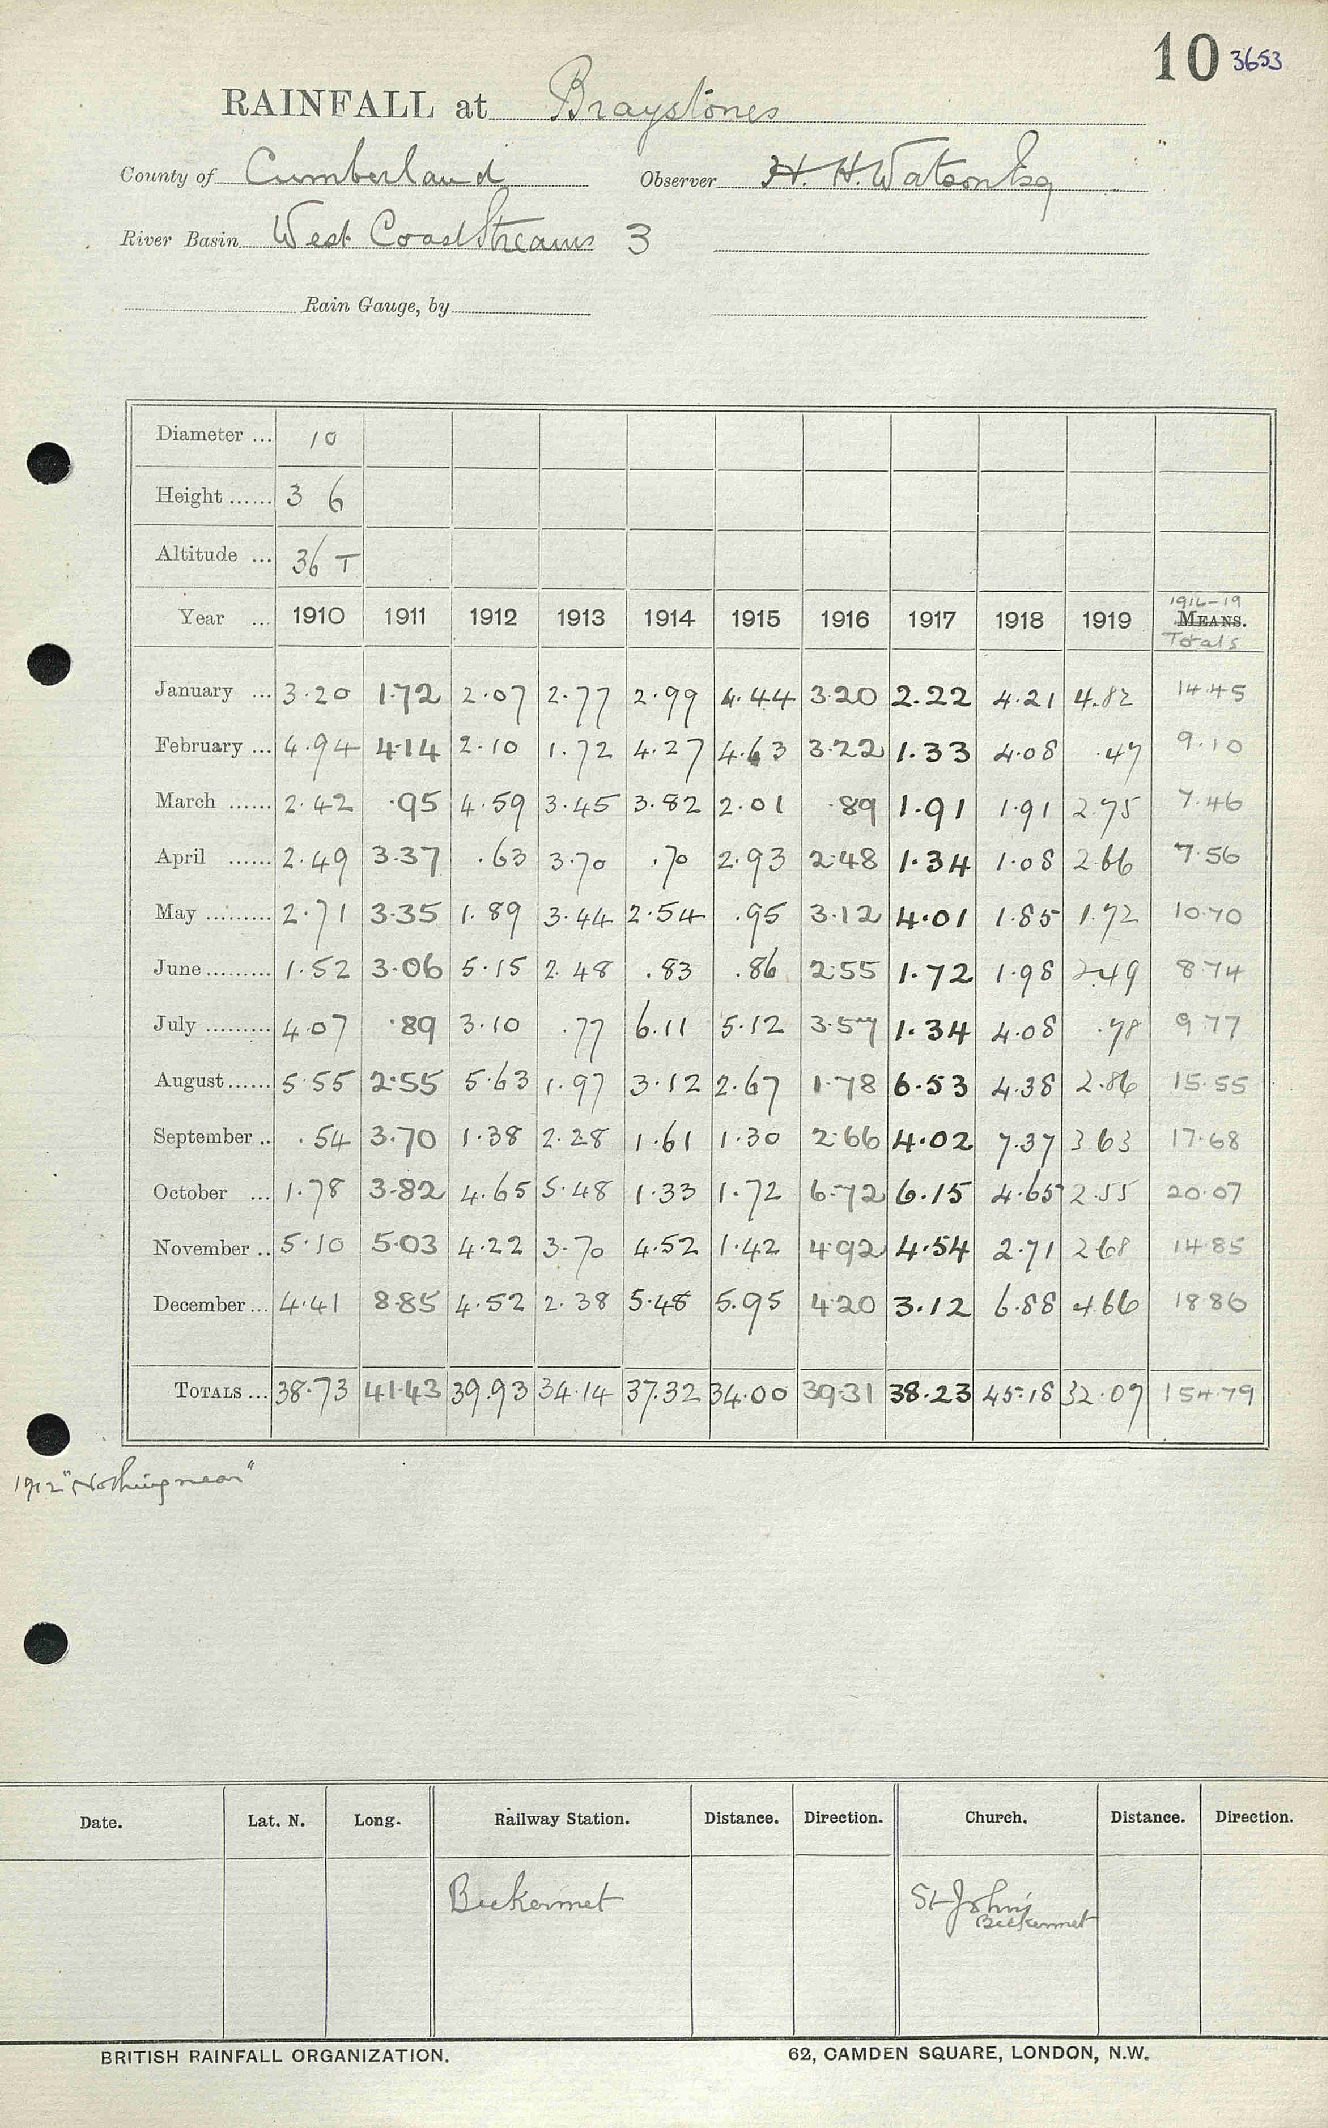 10 3653
RAINFALL at Braystones
County of Cumberland Observer H. H. Watson Esq
River Basin West Coast Streams 3
Rain Gauge, by
Diameter ... 10
Height ...... 3 6
Altitude ... 36 T
1916-19
Year ... 1910 1911 1912 1913 1914 1915 1916 1917 1918 1919 MEANS.
Totals
January ... 3.20 1.72 2.07 2.77 2.99 4.44 3.20 2.22 4.21 4.82 14.45
February ... 4.94 4.14 2.10 1.72 4.27 4.63 3.22 1.33 4.08 .47 9.10
March ...... 2.42 .95 4.59 3.45 3.82 2.01 .89 1.91 1.91 2.75 7.46
April ...... 2.49 3.37 .63 3.70 .70 2.93 2.48 1.34 1.08 2.66 7.56
May ......... 2.71 3.35 1.89 3.44 2.54 .95 3.12 4.01 1.85 1.72 10.70
June ......... 1.52 3.06 5.15 2.48 .83 .86 2.55 1.72 1.98 2.49 8.74
July ......... 4.07 .89 3.10 .77 6.11 5.12 3.57 1.34 4.08 .78 9.77
August ...... 5.55 2.55 5.63 1.97 3.12 2.67 1.78 6.53 4.38 2.86 15.55
September .. .54 3.70 1.38 2.28 1.61 1.30 2.66 4.02 7.37 3.63 17.68
October ... 1.78 3.82 4.65 5.48 1.33 1.72 6.72 6.15 4.65 2.55 20.07
November .. 5.10 5.03 4.22 3.70 4.52 1.42 4.92 4.54 2.71 2.68 14.85
December ... 4.41 8.85 4.52 2.38 5.48 5.95 4.20 3.12 6.88 4.66 18.86
TOTALS ... 38.73 41.43 39.93 34.14 37.32 34.00 39.31 38.23 45.18 32.07 154.79
1912 "Nothing near"
Date. Lat. N. Long. Railway Station. Distance. Direction. Church. Distance. Direction.
Beckermet St John's
Beckermet
BRITISH RAINFALL ORGANIZATION. 62, CAMDEN SQUARE, LONDON, N.W.